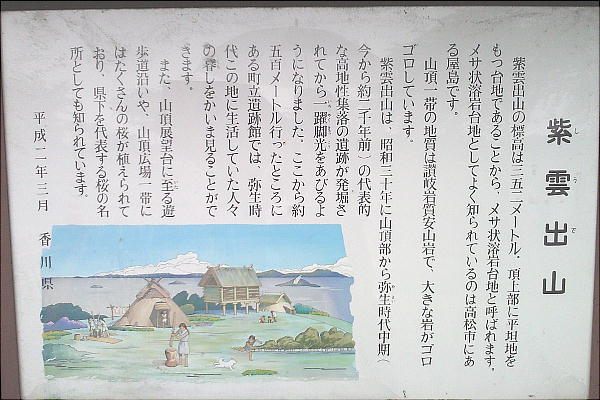 紫雲出山
し で
紫雲出山の標高は三五二メートル．頂上部に平坦地を
もつ台地であることから、メサ状溶岩台地と呼ばれます．
メサ状溶岩台地としてよく知られているのは高松市にあ
る屋島です。
山頂一帯の地質は讃岐岩質安山岩で、大きな岩がゴロ
ゴロしています。
紫雲出山は、昭和三十年に山頂部から弥生時代中期（
今から約二千年前）の代表的
な高地性集落の遺跡が発掘さ
れてから一躍脚光をあびるよ
うになりました．ここから約
五百メートル行ったところに
ある町立遺跡館では、弥生時
代この地に生活していた人々
の暮しをかいま見ることがで
きます。
また、山頂展望台に至る遊
歩道沿いや、山頂広場一帯に
はたくさんの桜が植えられて
おり、県下を代表する桜の名
所としても知られています。
平成二年三月　香川県